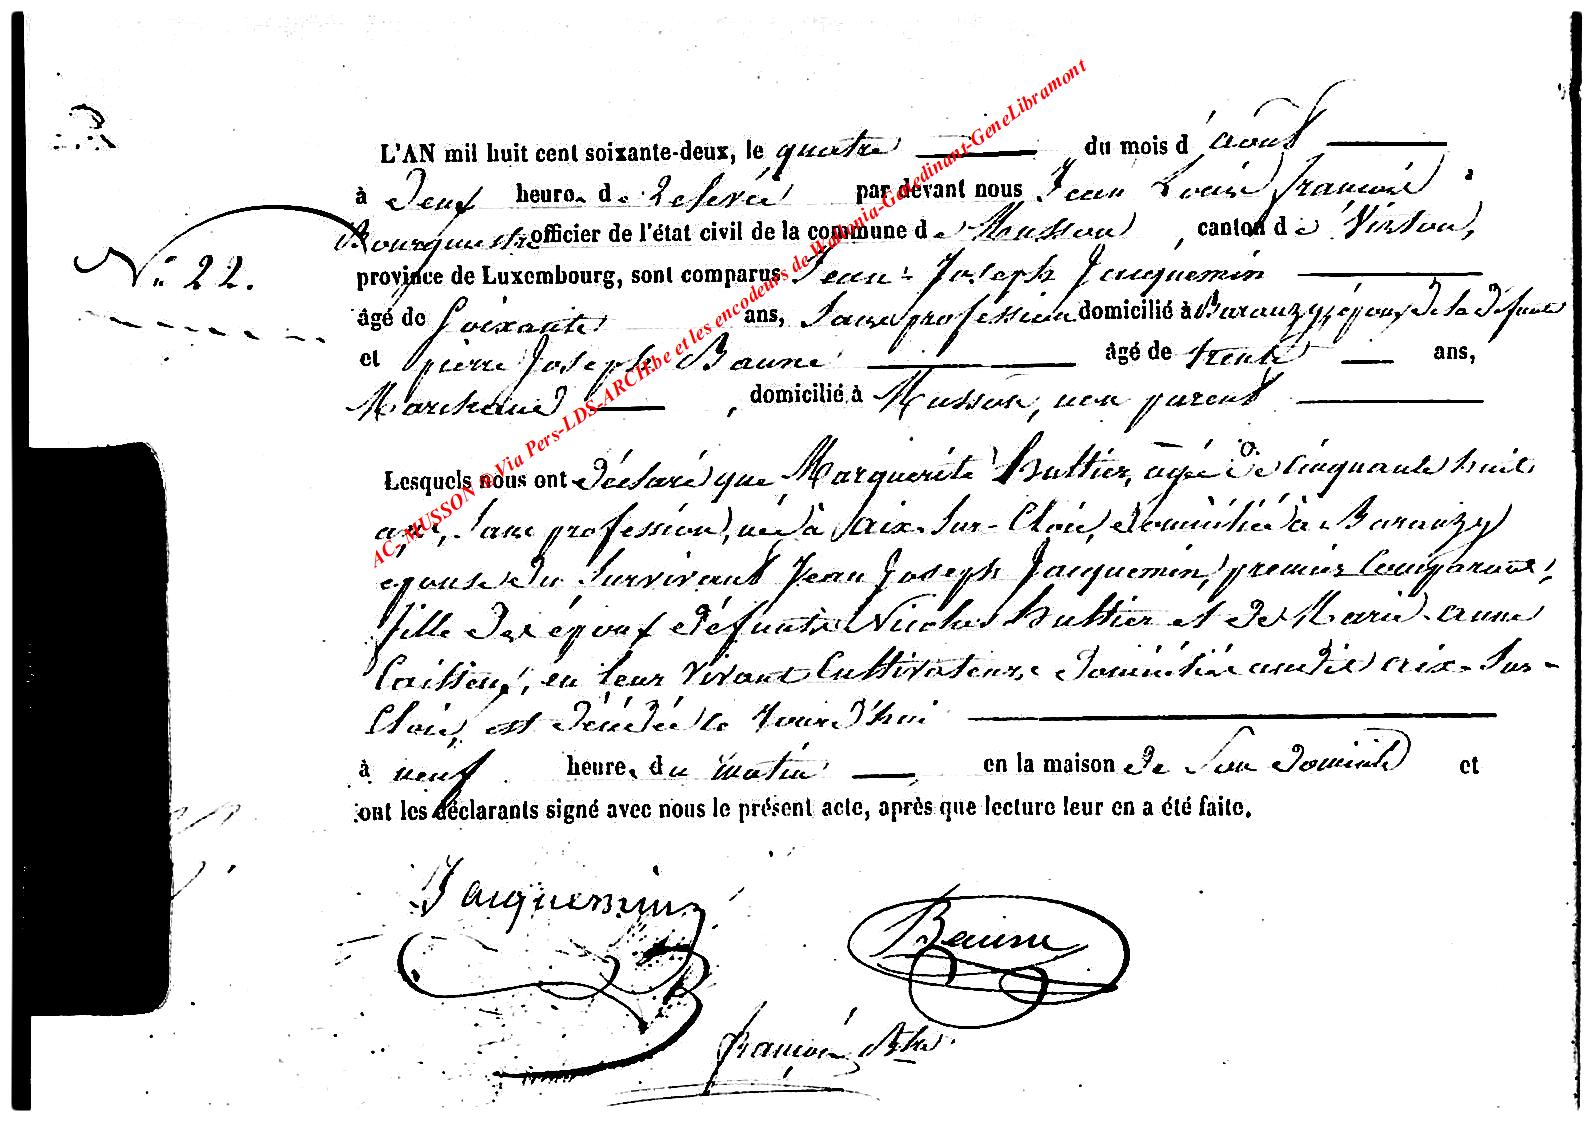 L'AN mil huit cent soixante-deux, le quatre du mois d'août
à Deux heure. de relevée par devant nous Jean Louis françois
Bourguestre officier de l'état civil de la commune de Musson, canton de Virton,
N° 22.
province de Luxembourg, sont comparus Jean-Joseph Jacquemin
âgé de Soixante ans, Sans profession domicilié à Baranzy, époux de la défunte
et pierre Joseph Baune âgé de trente ans,
Marchand, domicilié à Musson, non parent
Lesquels nous ont déclaré que Marguerite huttier, agée de Cinquante huit
ans, Sans profession, née à aix-Sur-Cloie, domiciliée à Baranzy
epouse du Survivant Jean Joseph Jacquemin, premier Comparant,
fille des époux défunts Nicolas huttier et de Marie-anne
en leur vivant Cultivateurs domiciliés audit aix-Sur-
Cloie, est décédée ce Jourd'hui
à neuf heure. du matin en la maison de Son domicile et
ont les déclarants signé avec nous le présent acte, après que lecture leur en a été faite.
Jacquemin
Baune
françois
AC-MUSSON @ Via Pers-LDS-ARCH.be et les encodeurs de Wallonia-Genedinant-GeneLibramont